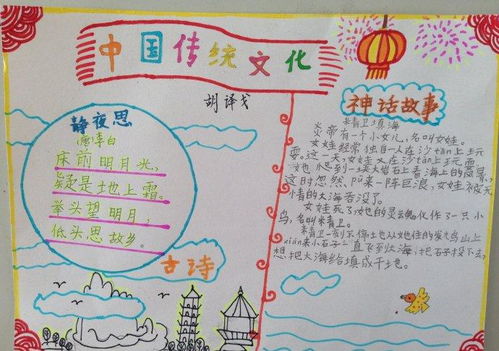 中国传统文化
胡译戈
静夜思
(唐)李白
床前明月光,
疑是地上霜。
举头望明月,
低头思故乡。
古诗
神话故事
精卫填海
炎帝有一个小女儿,名叫女娃。
女娃经常独自一人在沙tān上玩
耍。这一天,女娃又在沙tān上玩耍
她见到一块大岩石上看海上的风景,
这时忽然,pū来一阵巨浪,女娃被无
情的大海吞没了。
女娃死了,她的灵魂化作了一只小
鸟,名叫精卫。
精卫一刻不停地从她住的发鸟山上
xián来小石子一直飞到大海,把石子投下去,
想把大海给填成平地。